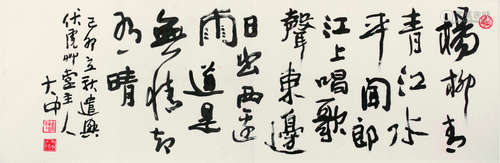 楊柳青
青江水
平聞郎
江上唱歌
聲東邊
日出西邊
雨道是
無情却
有晴
己卯立秋遣興
伏虎艸主人
大中